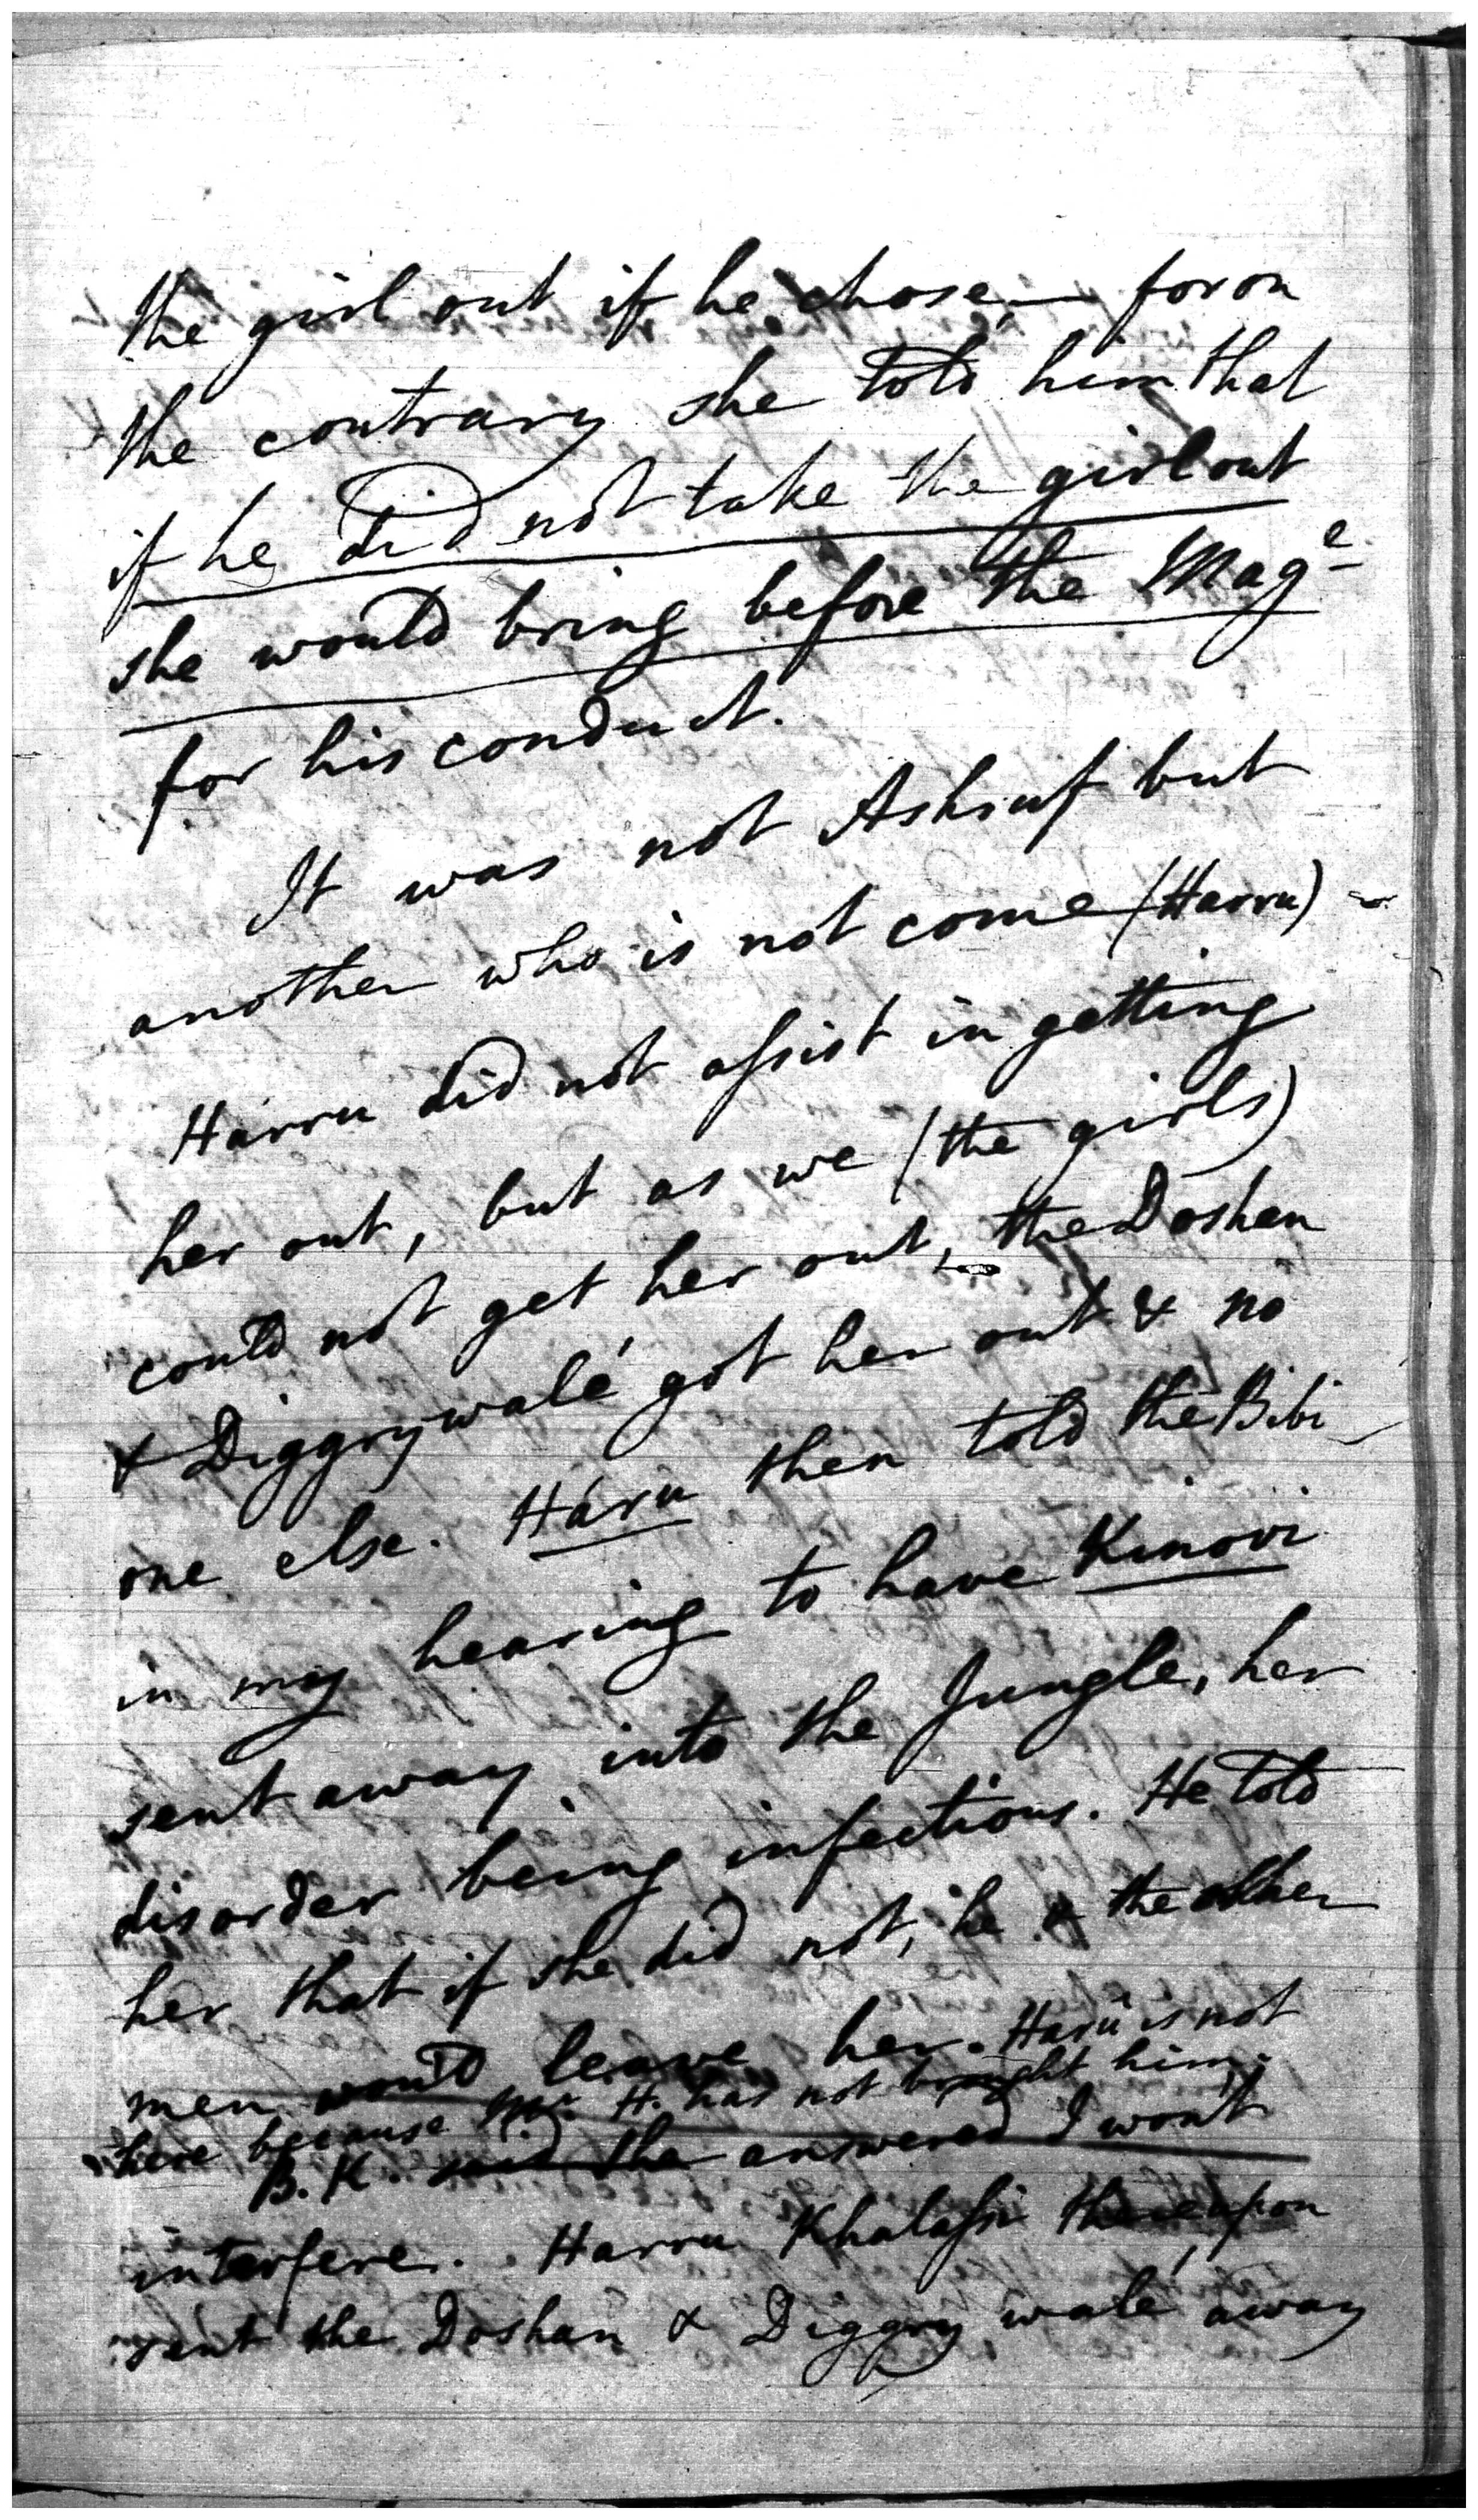 the girl out if he chose, — for on
the contrary she told him that
if he did not take the girl out
she would bring before the Mage
for his conduct.
It was not Ashruf but
another who is not come (Harru) —
Harru did not assist in getting
her out, but as we (the girls)
could not get her out, the Doshan
& Diggrywalé got her out & no
one else. Háru then told the Bibi
in my hearing to have Kinovi
sent away into the Jungle, her
disorder being infectious. He told
her that if she did not, he & the other
men would leave her. Harū is not
here because Mr. H. has not brought him.
B. K. said she answered I wont
interfere. Harru Khalassi thereupon
sent the Doshan & Diggry walé away